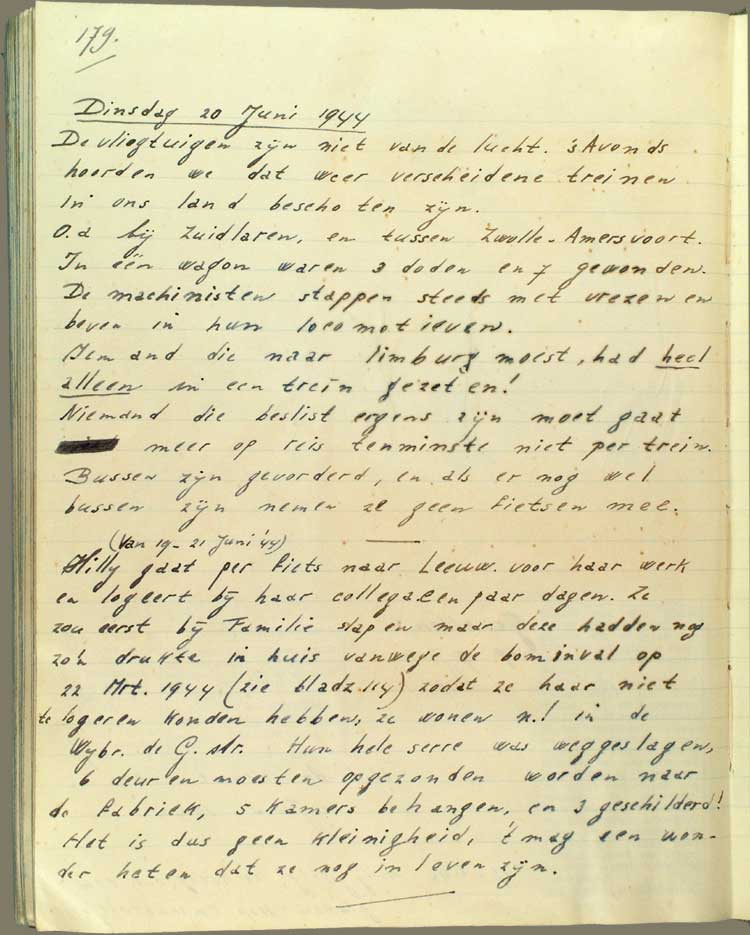 179.
Dinsdag 20 Juni 1944
De vliegtuigen zijn niet van de lucht. 's Avonds
hoorden we dat weer verscheidene treinen
in ons land beschoten zijn.
O.a bij Zuidlaren, en tussen Zwolle-Amersvoort.
In eén wagon waren 3 doden en 7 gewonden.
De machinisten stappen steeds met vrezen en
beven in hun locomotieven.
Iemand die naar limburg moest, had heel
alleen in een trein gezeten!
Niemand die beslist ergens zijn moet gaat
meer op reis tenminste niet per trein.
Bussen zijn gevorderd, en als er nog wel
bussen zijn nemen ze geen fietsen mee.
(Van 19-21 Juni '44)
Hilly gaat per fiets naar Leeuw. voor haar werk
en logeert bij haar collega een paar dagen. Ze
zou eerst bij Familie slapen maar deze hadden nog
zo'n drukte in huis vanwege de bominval op
22 Mrt. 1944 (zie bladz 114) zodat ze haar niet
te logeren konden hebben, ze wonen n.l in de
Wybr. de G. str. Hun hele serre was weggeslagen,
6 deuren moesten opgezonden worden naar
de fabriek, 5 kamers behangen, en 3 geschilderd!
Het is dus geen kleinigheid, 't mag een won-
der heten dat ze nog in leven zijn.